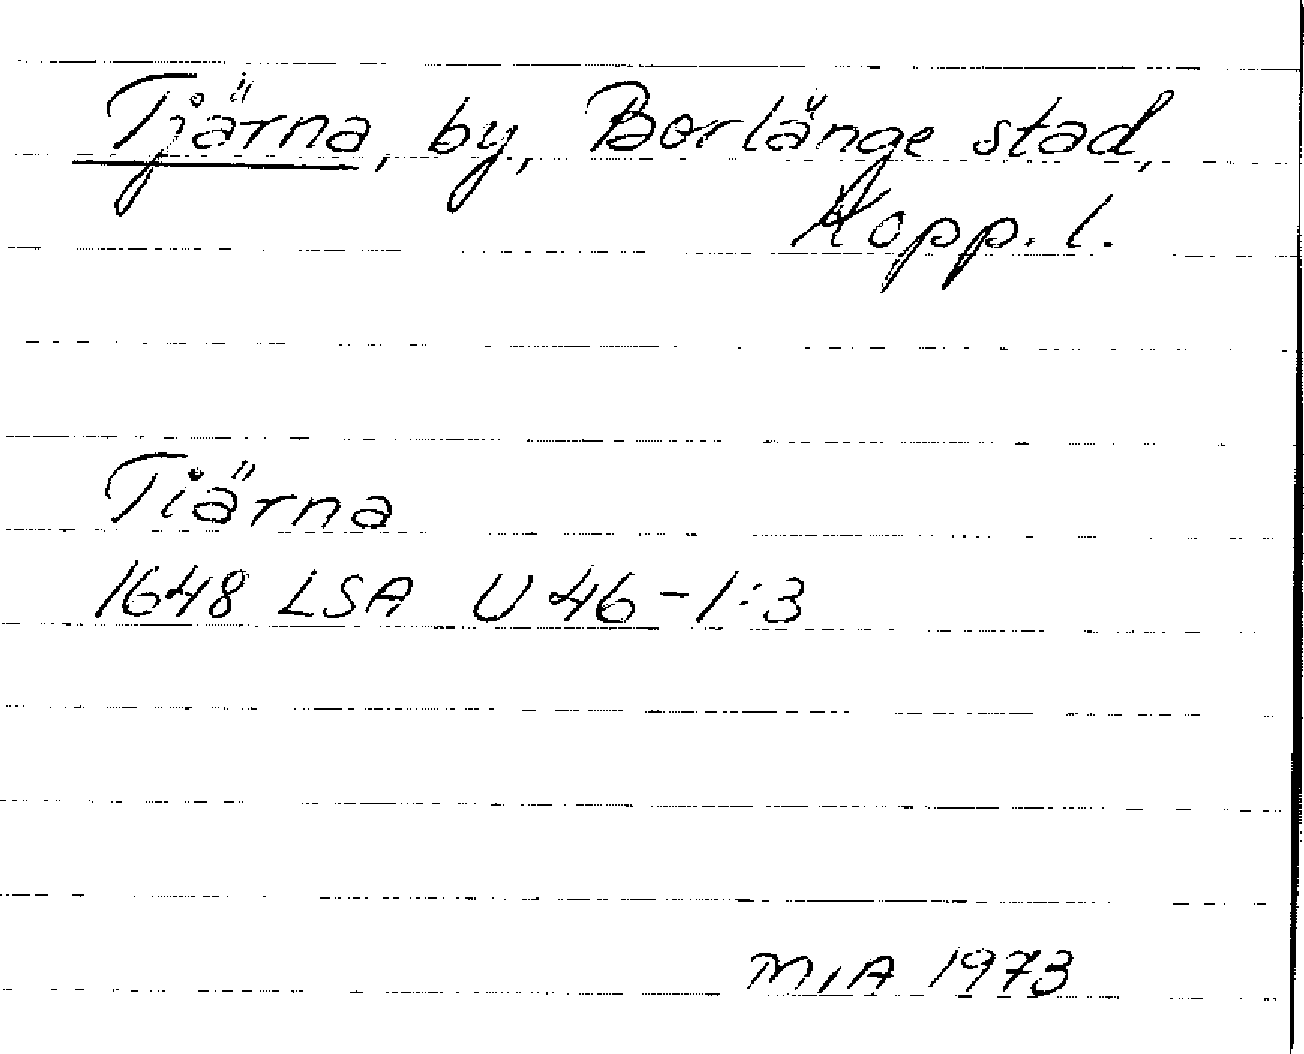 Tjärna, by, Borlänge stad,
Kopp. l.
Tiärna
1648 LSA U 46-1:3
MIA 1973